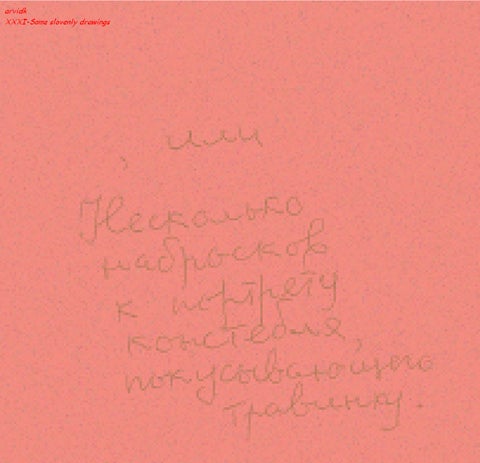 arvidk
XXXI-Some slovenly drawings
, или
Несколько
набросков
к портрету
констебля,
покусывающего
травинку.